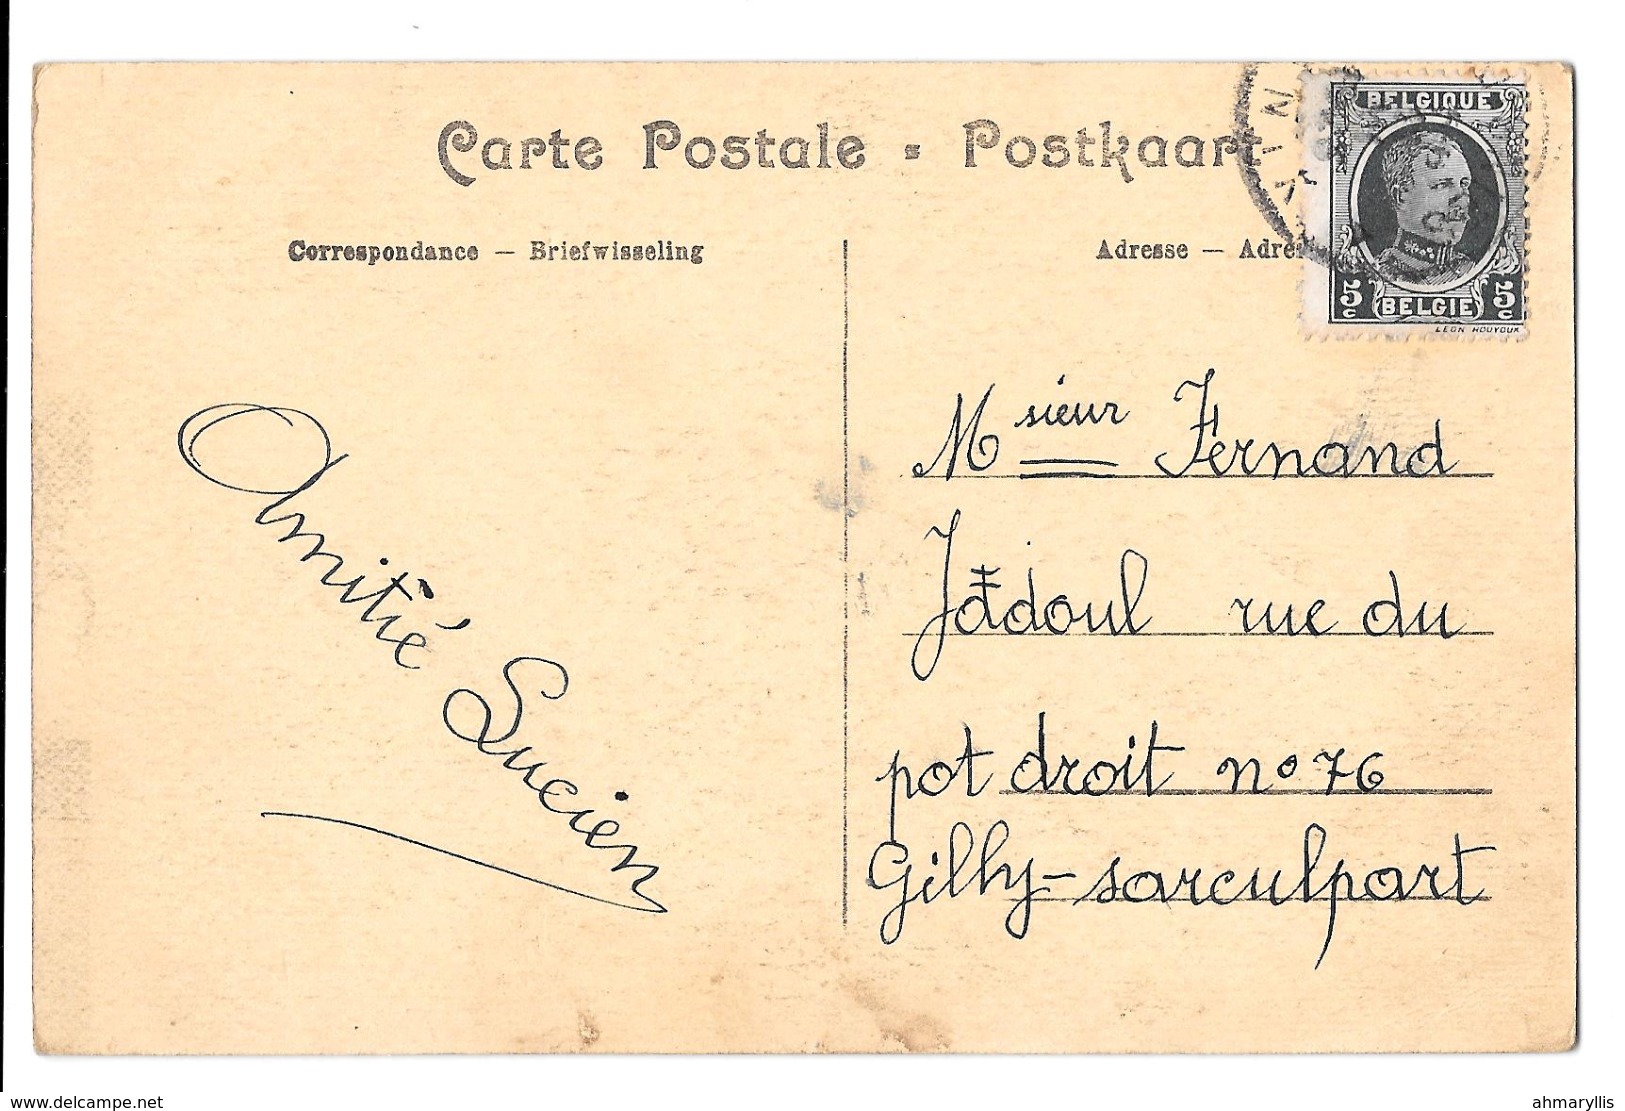 Carte Postale - Postkaart
Correspondance — Briefwisseling
Adresse — Adre
BELGIQUE
5c BELGIE 5c
LEON HOUYOUX
Amitié Lucien
Msieur Fernand
Jadoul rue du
pot droit no 76
Gilly-sarculpart
www.delcampe.net
ahmaryllis